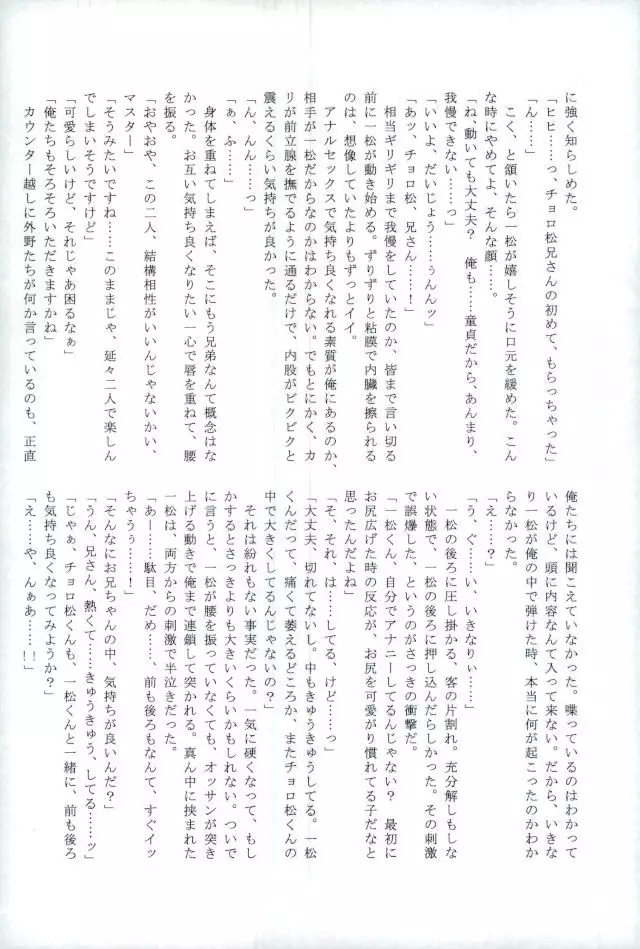 に強く知らしめた。
「ヒヒ……っ、チョロ松兄さんの初めて、もらっちゃった」
「ん……」
こく、と頷いたら一松が嬉しそうに口元を緩めた。こん
な時にやめてよ、そんな顔……。
「ね、動いても大丈夫？　俺も……童貞だから、あんまり、
我慢できない……っ」
「いいよ、だいじょう……ぅんんッ」
「あッ、チョロ松、兄さん……！」
相当ギリギリまで我慢をしていたのか、皆まで言い切る
前に一松が動き始める。ずりずりと粘膜で内臓を擦られる
のは、想像していたよりもずっとイイ。
アナルセックスで気持ち良くなれる素質が俺にあるのか、
相手が一松だからなのかはわからない。でもとにかく、カ
リが前立腺を撫でるように通るだけで、内股がビクビクと
震えるくらい気持ちが良かった。
「ん、んん……っ」
「ぁ、ふ……」
身体を重ねてしまえば、そこにもう兄弟なんて概念はな
かった。お互い気持ち良くなりたい一心で唇を重ねて、腰
を振る。
「おやおや、この二人、結構相性がいいんじゃないかい、
マスター」
「そうみたいですね……このままじゃ、延々二人で楽しん
でしまいそうですけど」
「可愛らしいけど、それじゃあ困るなぁ」
「俺たちもそろそろいただきますかね」
カウンター越しに外野たちが何か言っているのも、正直
俺たちには聞こえていなかった。喋っているのはわかって
いるけど、頭に内容なんて入って来ない。だから、いきな
り一松が俺の中で弾けた時、本当に何が起こったのかわか
らなかった。
「え……？」
「う、ぐ……い、いきなりぃ……」
一松の後ろに圧し掛かる、客の片割れ。充分解しもしな
い状態で、一松の後ろに押し込んだらしかった。その刺激
で誤爆した、というのがさっきの衝撃だ。
「一松くん、自分でアナニーしてるんじゃない？　最初に
お尻広げた時の反応が、お尻を可愛がり慣れてる子だなと
思ったんだよね」
「そ、それ、は……してる、けど……っ」
「大丈夫、切れてないし。中もきゅうきゅうしてる。一松
くんだって、痛くて萎えるどころか、またチョロ松くんの
中で大きくしてるんじゃないの？」
それは紛れもない事実だった。一気に硬くなって、もし
かするとさっきよりも大きいくらいかもしれない。ついで
に言うと、一松が腰を振っていなくても、オッサンが突き
上げる動きで俺まで連鎖して突かれる。真ん中に挟まれた
一松は、両方からの刺激で半泣きだった。
「あー……駄目、だめ……、前も後ろもなんて、すぐイッ
ちゃうぅ……！」
「そんなにお兄ちゃんの中、気持ちが良いんだ？」
「うん、兄さん、熱くて……きゅうきゅう、してる……ッ」
「じゃぁ、チョロ松くんも、一松くんと一緒に、前も後ろ
も気持ち良くなってみようか？」
「え……や、んぁあ……！！」